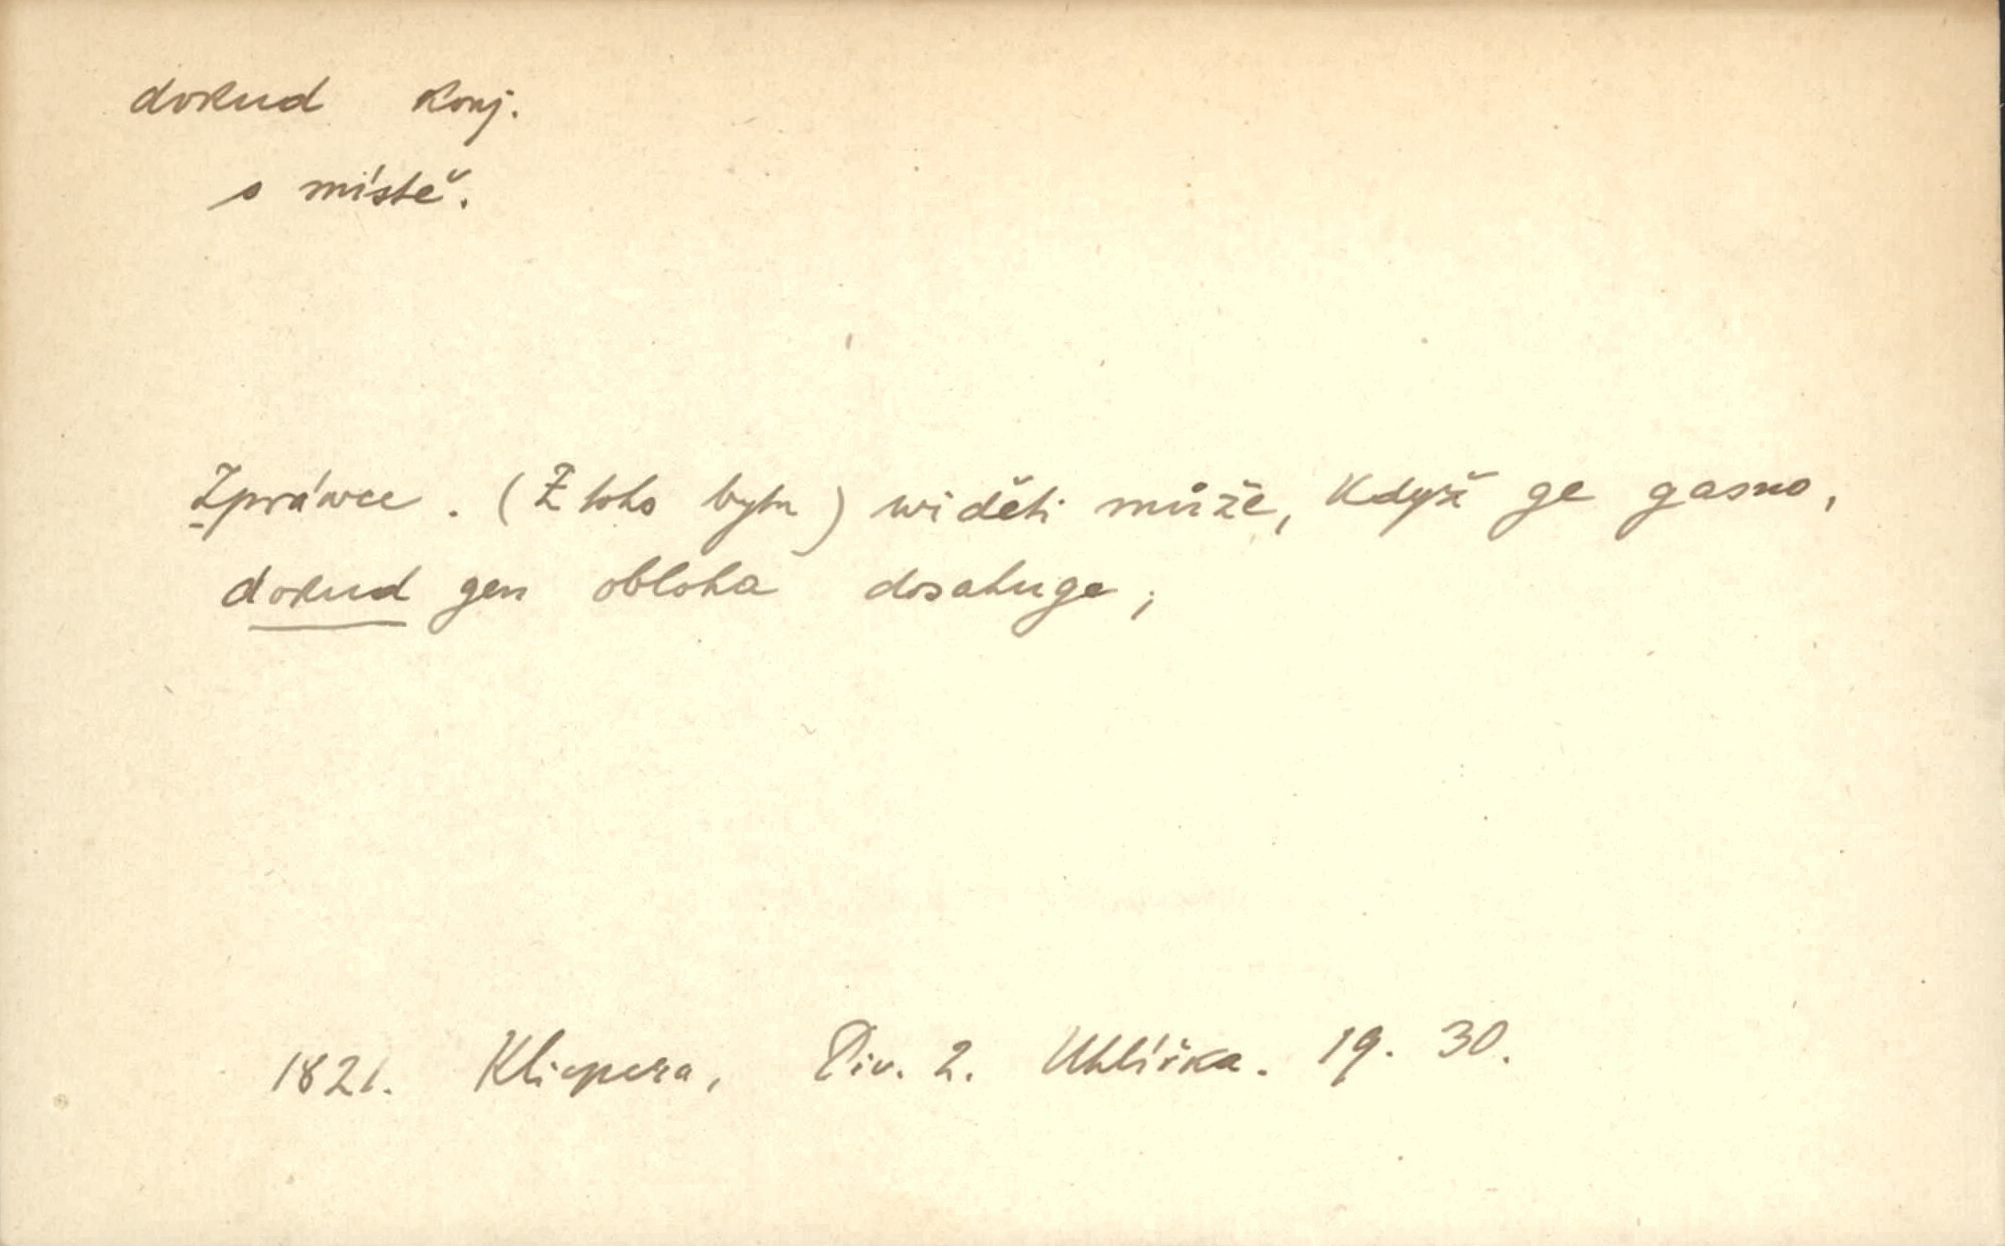 dokud konj.
o místě.
Zpráwce. (Z toho bytu) widěti může, když ge gasno,
dokud gen obloha dosahuge;
1821. Klicpera, Div. 2. Uhlířka. 19. 30.